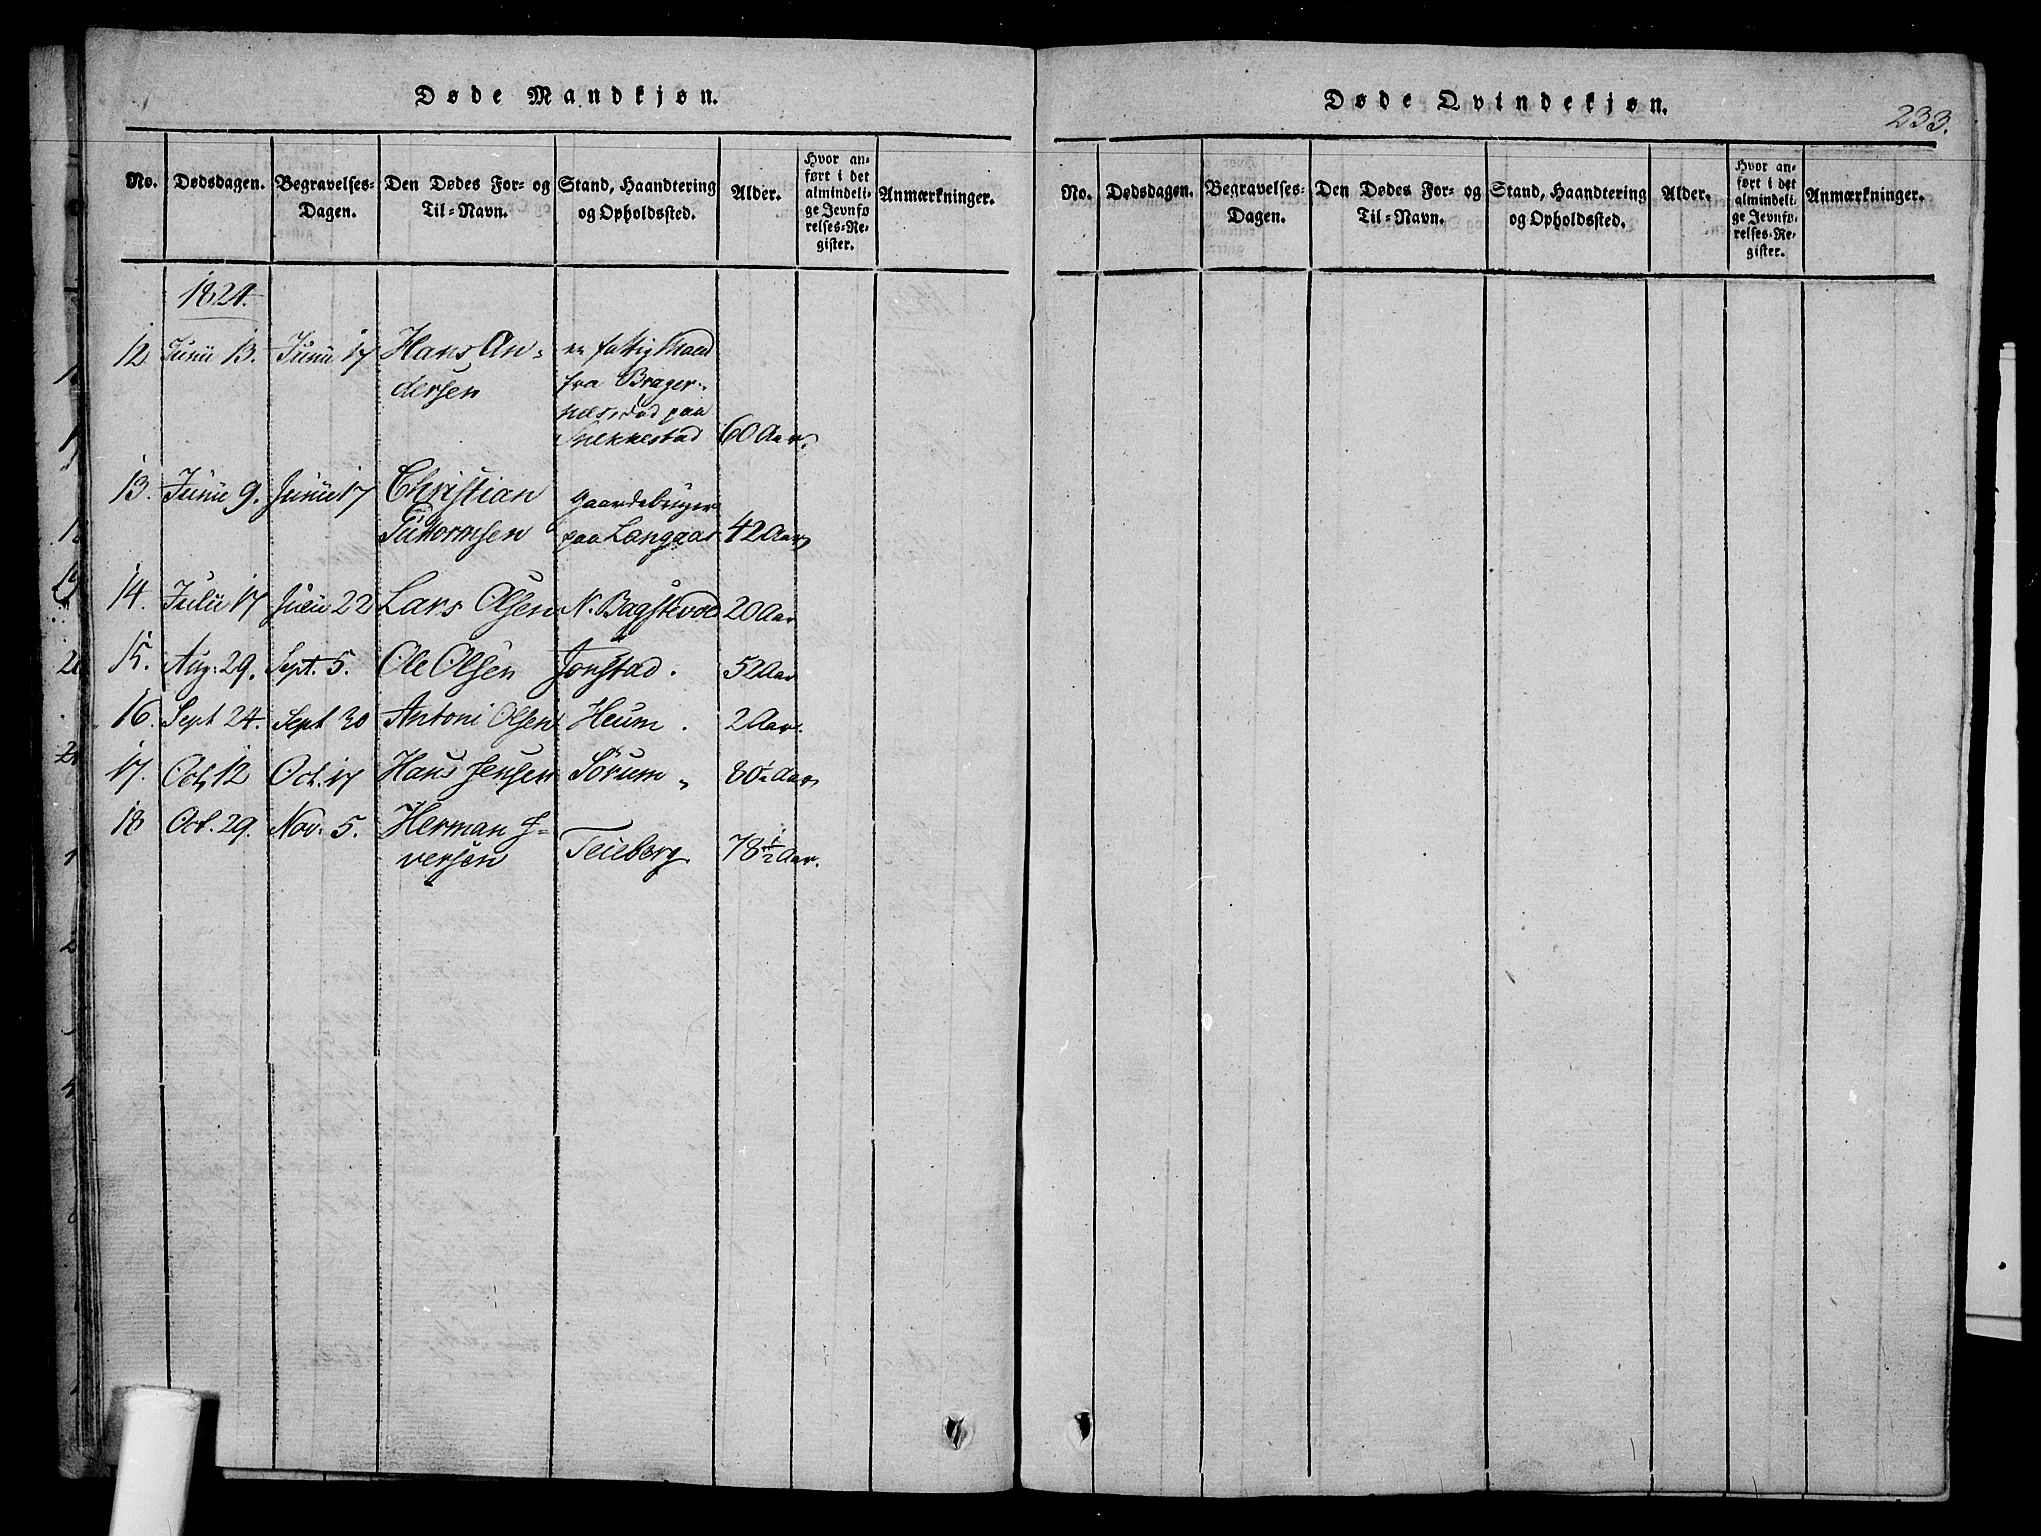 Døde Mandkjøn.
No.
Dødsdagen.
Begravelses-
Dagen.
Den Dødes For- og
Til-Navn.
Stand, Haandtering
og Opholdssted.
Alder.
Hvor an-
ført i det
almindeli-
ge Jevnfø
relses-Re-
gister.
Anmærkninger.
1824.
12 Junii 13. Junii 17 Hans An-
dersen
en fattig Mand
fra Brager-
næs, død paa
60 Aar.
13. Junii 9. Junii 17 Christian
Guttormsen
Gaardebruger
paa Langaas 42 Aar
14. Julii 17 Julii 22 Lars Olsen N. 20 Aar
15. Aug. 29. Sept. 5. Ole Olsen Jonstad. 52 Aar
16. Sept 24. Sept 30 Antoni Olsen Heum. 2 Aar.
17. Oct 12 Oct. 17 Hans Jensen Sørum „ 80½ Aar
18 Oct. 29. Nov. 5. Herman I-
versen
Teieberg 78½ Aar.
Døde Qvindekjøn.
233.
No.
Dødsdagen.
Begravelses-
Dagen.
Den Dødes For- og
Til-Navn.
Stand, Haandtering
og Opholdssted.
Alder.
Hvor an-
ført i det
almindeli-
ge Jevnfø-
relses-Re-
gister.
Anmærkninger.